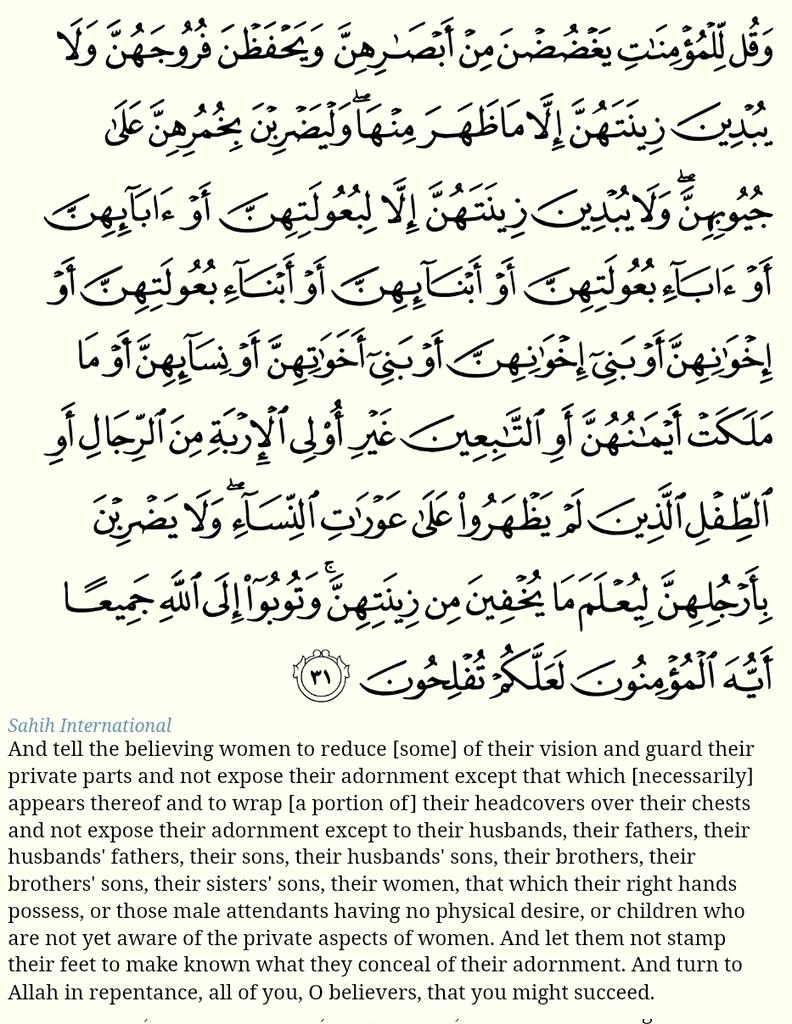 وَقُل لِّلْمُؤْمِنَـٰتِ يَغْضُضْنَ مِنْ أَبْصَـٰرِهِنَّ وَيَحْفَظْنَ فُرُوجَهُنَّ وَلَا
يُبْدِينَ زِينَتَهُنَّ إِلَّا مَا ظَهَرَ مِنْهَا ۖ وَلْيَضْرِبْنَ بِخُمُرِهِنَّ عَلَىٰ
جُيُوبِهِنَّ ۖ وَلَا يُبْدِينَ زِينَتَهُنَّ إِلَّا لِبُعُولَتِهِنَّ أَوْ ءَابَآئِهِنَّ
أَوْ ءَابَآءِ بُعُولَتِهِنَّ أَوْ أَبْنَآئِهِنَّ أَوْ أَبْنَآءِ بُعُولَتِهِنَّ أَوْ
إِخْوَٰنِهِنَّ أَوْ بَنِىٓ إِخْوَٰنِهِنَّ أَوْ بَنِىٓ أَخَوَٰتِهِنَّ أَوْ نِسَآئِهِنَّ أَوْ مَا
مَلَكَتْ أَيْمَـٰنُهُنَّ أَوِ ٱلتَّـٰبِعِينَ غَيْرِ أُو۟لِى ٱلْإِرْبَةِ مِنَ ٱلرِّجَالِ أَوِ
ٱلطِّفْلِ ٱلَّذِينَ لَمْ يَظْهَرُوا۟ عَلَىٰ عَوْرَٰتِ ٱلنِّسَآءِ ۖ وَلَا يَضْرِبْنَ
بِأَرْجُلِهِنَّ لِيُعْلَمَ مَا يُخْفِينَ مِن زِينَتِهِنَّ ۚ وَتُوبُوٓا۟ إِلَى ٱللَّهِ جَمِيعًا
أَيُّهَ ٱلْمُؤْمِنُونَ لَعَلَّكُمْ تُفْلِحُونَ ٣١
Sahih International
And tell the believing women to reduce [some] of their vision and guard their
private parts and not expose their adornment except that which [necessarily]
appears thereof and to wrap [a portion of] their headcovers over their chests
and not expose their adornment except to their husbands, their fathers, their
husbands' fathers, their sons, their husbands' sons, their brothers, their
brothers' sons, their sisters' sons, their women, that which their right hands
possess, or those male attendants having no physical desire, or children who
are not yet aware of the private aspects of women. And let them not stamp
their feet to make known what they conceal of their adornment. And turn to
Allah in repentance, all of you, O believers, that you might succeed.